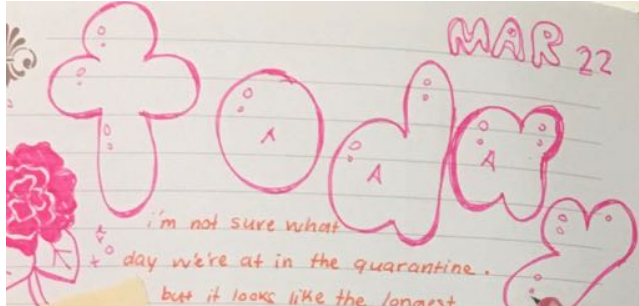 MAR 22
today
i'm not sure what
day we're at in the quarantine.
but it looks like the longest